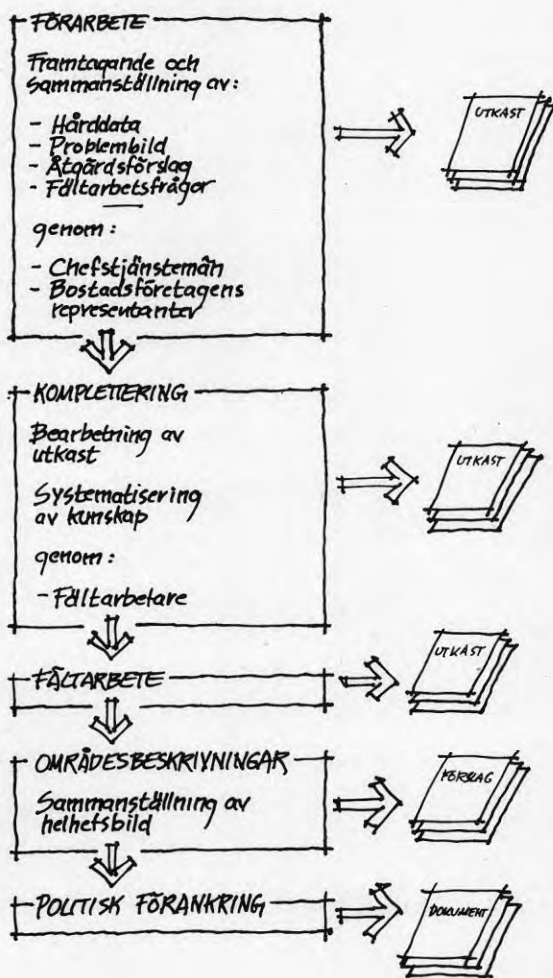 FÖRARBETE
Framtagande och
sammanställning av:
- Hårddata
- Problembild
- Åtgärdsförslag
- Fältarbetsfrågor
genom:
- Chefstjänstemän
- Bostadsföretagens
representanter
UTKAST
KOMPLETTERING
Bearbetning av
utkast
Systematisering
av kunskap
genom:
- Fältarbetare
UTKAST
FÄLTARBETE
UTKAST
OMRÅDESBESKRIVNINGAR
Sammanställning av
helhetsbild
FÖRSLAG
POLITISK FÖRANKRING
DOKUMENT